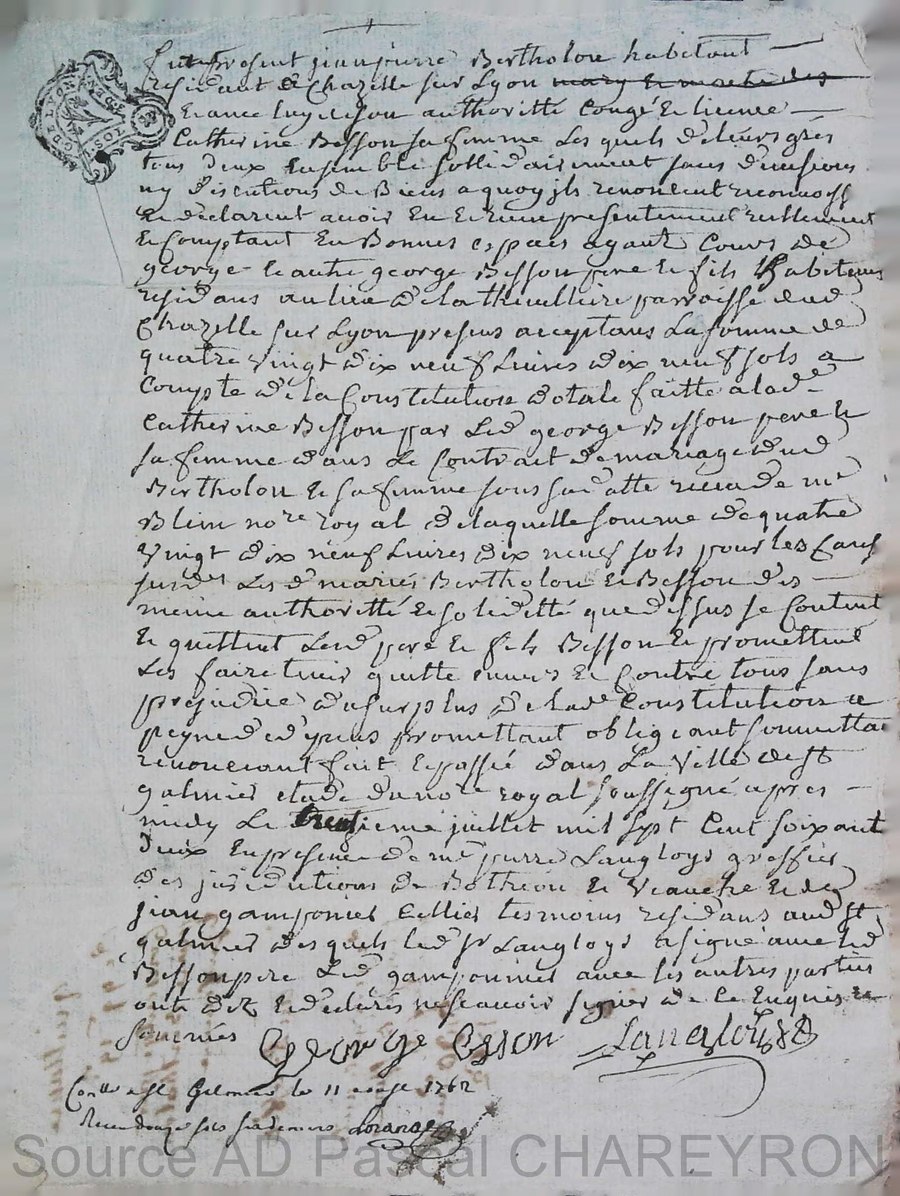 fut present jean pierre Bertholon habitant
residant de Chazelle sur Lyon
Catherine Besson sa femme Lesquels de leurs grés
tous deux Ensemble sollidairement sans divisions
ny discutions de Biens a quoy jls renoncent
Et declarent avoir Eu Et receu presentement reellement
Et Comptant En Bonnes espces ayant Cours de
george Et autre george Besson pere Et fils habitans
residans au lieu de la thieulliere parroisse dud
Chazelle sur Lyon presens acceptans La somme de
quatre vingt dix neuf Livres dix neuf sols a
Compte de la Constitution dotale faitte a lade
Catherine Besson par Led george Besson pere Et
sa femme dans Le Contrait de mariage dud
Bertholon Et sa femme sous sa datte receu de me
Blim nore royal de laquelle somme de quatre
vingt dix neuf Livres dix neuf sols pour les Causes
susdes Les d mariés Bertholon Et Besson des
meme authoritté Et soliditté que dessus se Contentent
Et quittent Lesd pere Et fils Besson Et promettent
Les faire tenir quitte envers Et Contre tous sans
prejudice du surplus de lade Constitution a
peyne d promettant obligeant soumettant
renonceant fait Et passé dans La ville de St
galmier etude du nore royal soussigné apres
midy Le treizieme juillet mil sept Cent soixante
deux En presence de me pierre Langloys greffier
des jurisdictions de Botheon Et Veauche Et de
jean gamponier Cellier tesmoins residans aud St
galmier desquels led sr Langloys a signé avec led
Besson pere Led gamponnier avec les autres parties
ont dit Et declaré ne scavoir signer de ce Enquis Et
sommés George Besson Langlois
Conllé a St Galmier le 11 aoust 1762
Receu douze sols six deniers
Source AD Pascal CHAREYRON